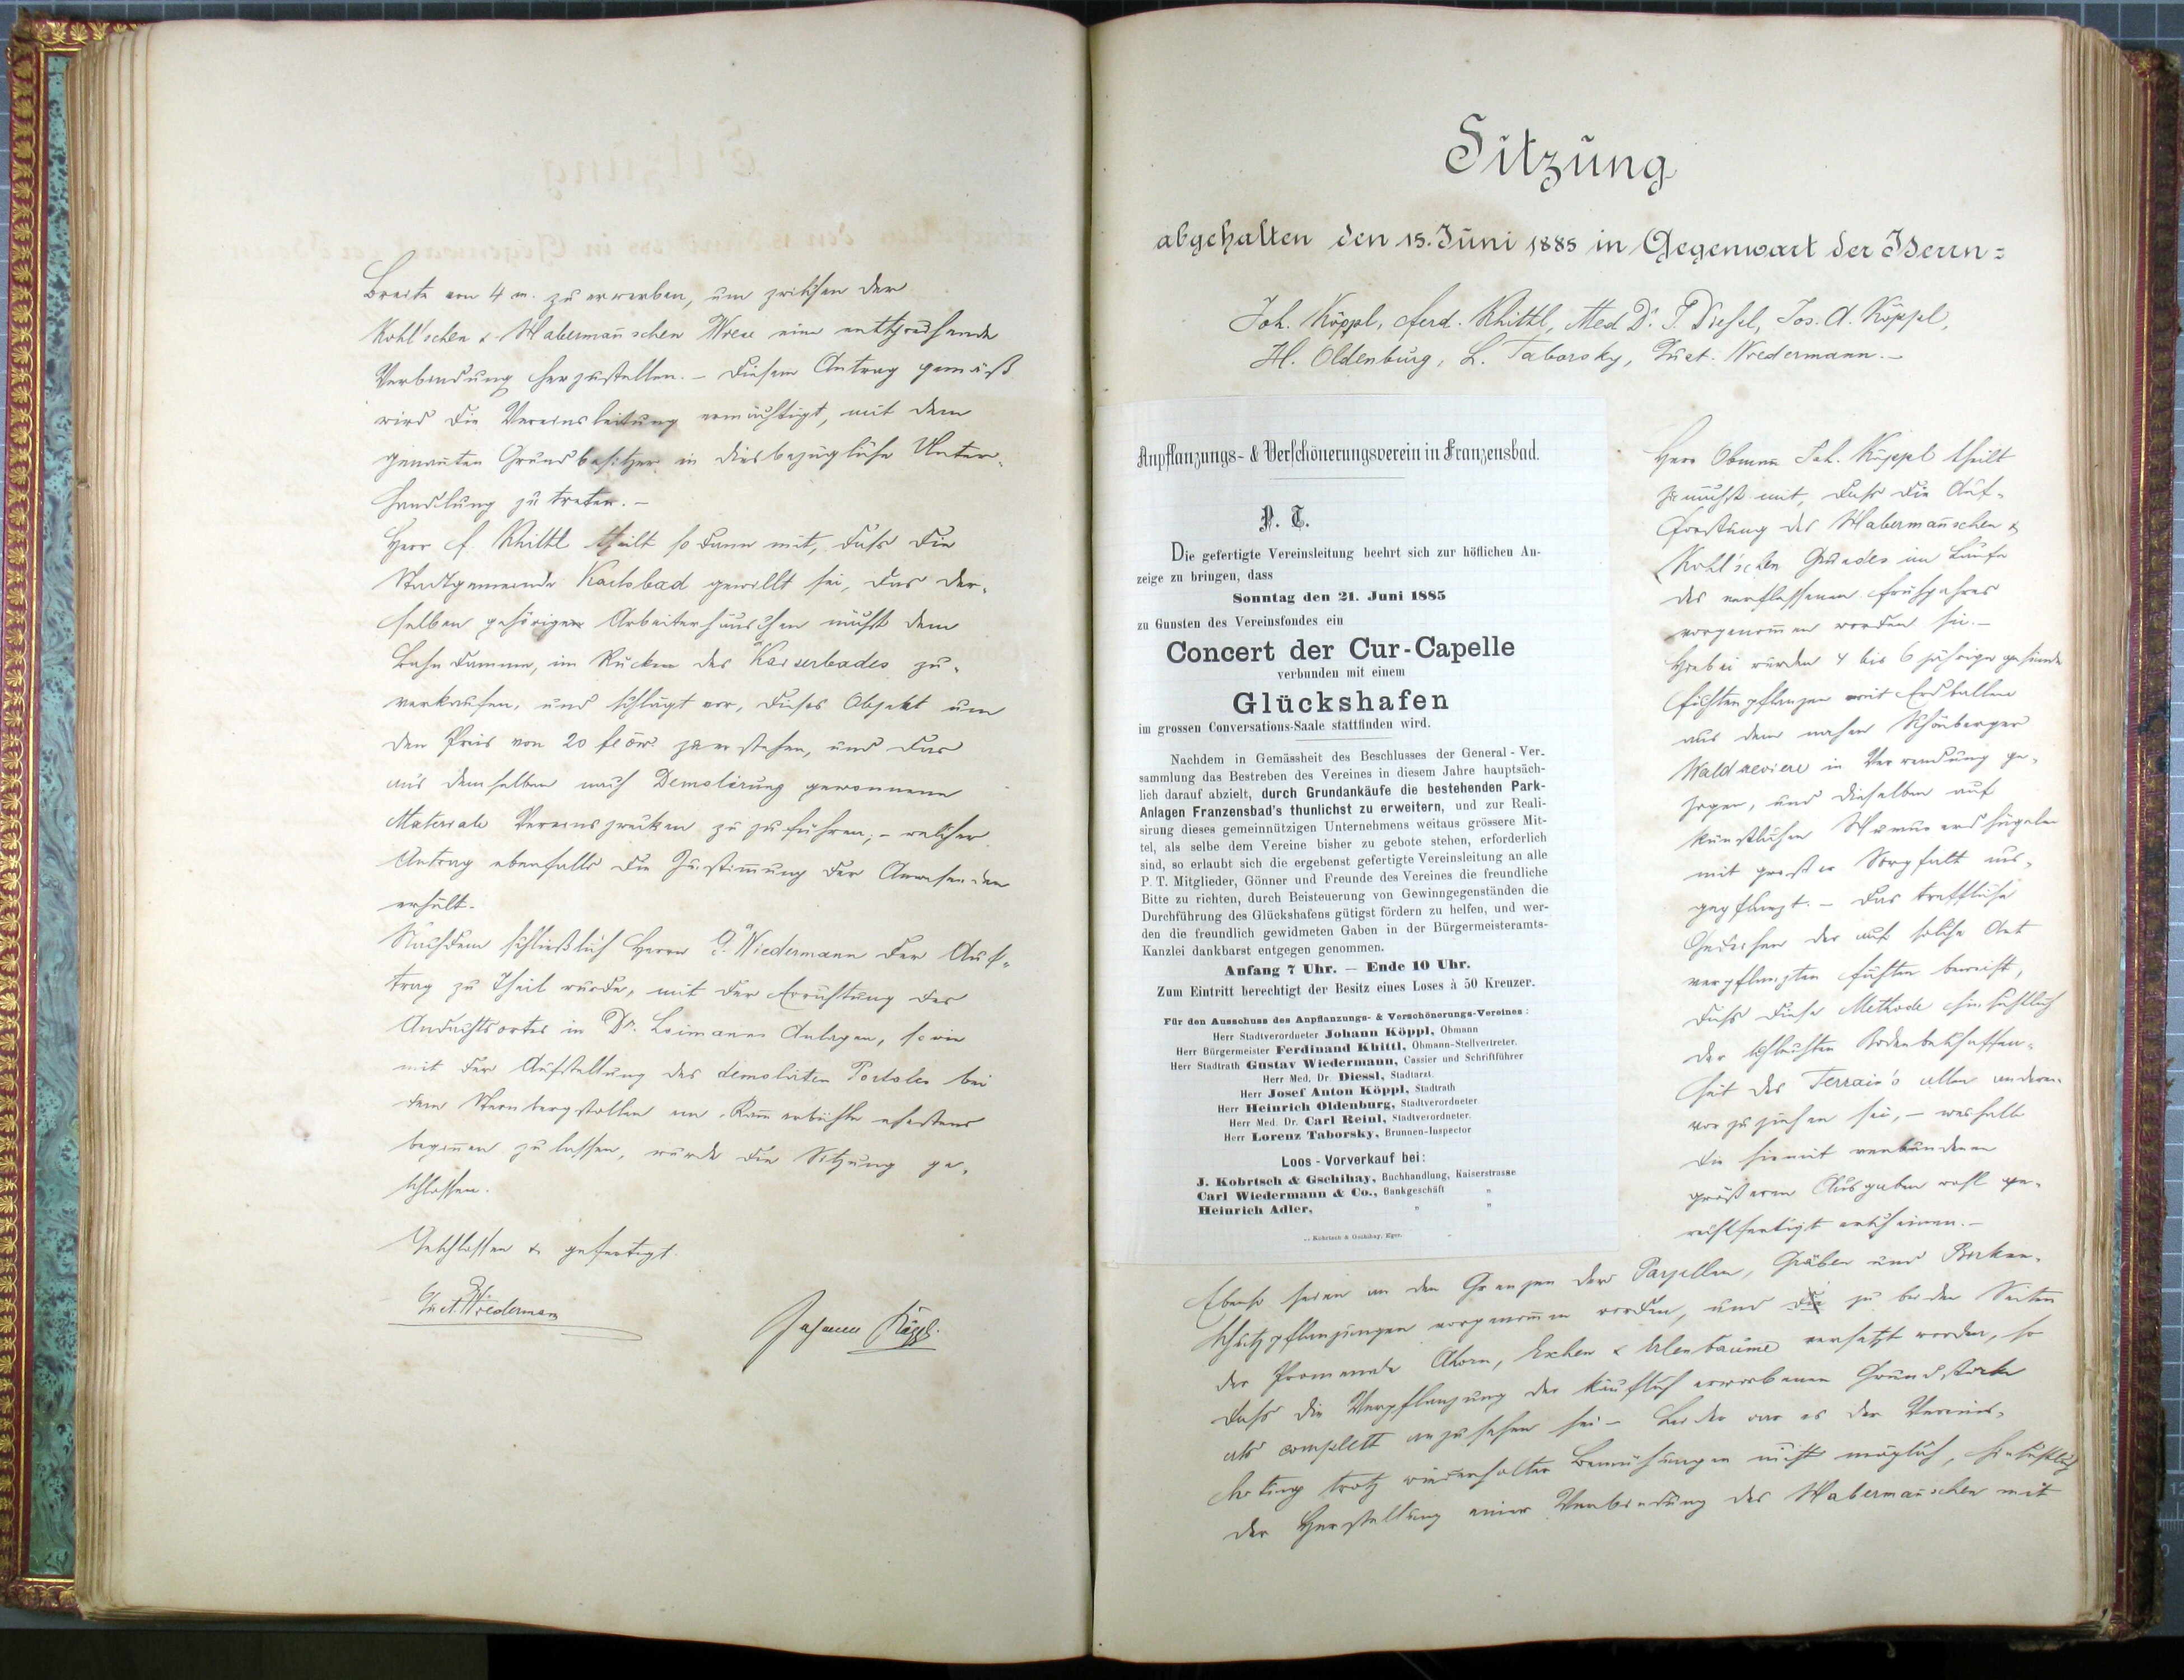 Breite von 4 m. zu erwerben, um zwischen der
Kohl'schen & Habermañ'schen Wiese eine entsprechende
Verbindung herzustellen. – Diesem Antrag gemäß
wird die Vereinsleitung ermächtigt, mit dem
genañten Grundbesitzer in diesbezügliche Unter-
handlung zu treten. –
Herr F. Khittl theilt sodann mit, dass die
Stadtgemeinde Karlsbad gewillt sei, das der-
selben gehörige Arbeiterhäuschen nächst dem
Bahndamme, im Rücken des Kaiserbades zu
verkaufen, und schlägt vor, dieses Objekt um
den Preis von 20 fl öw. zu erstehen, und das
aus demselben nach Demolirung gewonnene
Materiale Vereinszwecken zu zuführen; – welcher
Antrag ebenfalls die Zustim̄ung der Anwesenden
erhält.
Nachdem schließlich Herrn G. Wiedermann der Auf-
trag zu Theil wurde, mit der Errichtung des
Andachtsortes in Dr. Loimanns Anlagen, sowie
mit der Aufstellung des demolirten Portales bei
dem Sternbergstollen am Kam̄erbühle ehestens
begiñen zu lassen, wurde die Sitzung ge-
schlossen.
Geschlossen & gefertigt.
Gust. Wiedermann
Johann Köppl.
Sitzung
abgehalten den 15. Juni 1885 in Gegenwart der Herrn:
Joh. Köppl, Ferd. Khittl, Med Dr. J. Diessl, Jos. A. Köppl,
H. Oldenburg, L. Taborsky, Gust. Wiedermann. –
Anpflanzungs- & Verschönerungsverein in Franzensbad.
P. T.
Die gefertigte Vereinsleitung beehrt sich zur höflichen An-
zeige zu bringen, dass
Sonntag den 21. Juni 1885
zu Gunsten des Vereinsfondes ein
Concert der Cur-Capelle
verbunden mit einem
Glückshafen
im grossen Conversations-Saale stattfinden wird.
Nachdem in Gemässheit des Beschlusses der General-Ver-
sammlung das Bestreben des Vereines in diesem Jahre hauptsäch-
lich darauf abzielt, durch Grundankäufe die bestehenden Park-
Anlagen Franzensbad's thunlichst zu erweitern, und zur Reali-
sirung dieses gemeinnützigen Unternehmens weitaus grössere Mit-
tel, als selbe dem Vereine bisher zu gebote stehen, erforderlich
sind, so erlaubt sich die ergebenst gefertigte Vereinsleitung an alle
P. T. Mitglieder, Gönner und Freunde des Vereines die freundliche
Bitte zu richten, durch Beisteuerung von Gewinngegenständen die
Durchführung des Glückshafens gütigst fördern zu helfen, und wer-
den die freundlich gewidmeten Gaben in der Bürgermeisteramts-
Kanzlei dankbarst entgegen genommen.
Anfang 7 Uhr. — Ende 10 Uhr.
Zum Eintritt berechtigt der Besitz eines Loses à 50 Kreuzer.
Für den Ausschuss des Anpflanzungs- & Verschönerungs-Vereines:
Herr Stadtverordneter Johann Köppl, Obmann
Herr Bürgermeister Ferdinand Khittl, Obmann-Stellvertreter.
Herr Stadtrath Gustav Wiedermann, Cassier und Schriftführer
Herr Med. Dr. Diessl, Stadtarzt.
Herr Josef Anton Köppl, Stadtrath
Herr Heinrich Oldenburg, Stadtverordneter
Herr Med. Dr. Carl Reinl, Stadtverordneter.
Herr Lorenz Taborsky, Brunnen-Inspector
Loos-Vorverkauf bei:
J. Kobrtsch & Gschihay, Buchhandlung, Kaiserstrasse
Carl Wiedermann & Co., Bankgeschäft "
Heinrich Adler, " "
Kobrtsch & Gschihay, Eger.
Herr Obmañ Joh. Köppl theilt
zunächst mit, dass die Auf-
forstung des Habermañ'schen &
Kohl'schen Grundes im Laufe
des verflossenen Frühjahres
vorgenom̄en worden sei. –
Hiebei wurden 4 bis 6 jährige gesunde
Fichtenpflanzen mit Erdballen
aus dem nahen Schönberger
Waldreviere in Verwendung ge-
zogen, und dieselben auf
künstlichen Humuserdhügeln
mit großer Sorgfalt aus-
gepflanzt. – Das treffliche
Gedeihen der auf solche Art
verpflanzten Fichten beweist,
dass diese Methode hinsichtlich
der schlechten Bodenbeschaffen-
heit des Terrain's allen anderen
vorzuziehen sei, – weshalb
die hiemit verbundenen
größeren Ausgaben wohl ge-
rechtfertigt erscheinen. –
Ebenso seien an den Grenzen der Parzellen, Gräben und Birken-
schutzpflanzungen vorgenom̄en worden, und zu beiden Seiten
der Promenade Ahorn, Eschen & Erlenbäume versetzt worden, so
dass die Verpflanzung der käuflich erworbenen Grundstücke
als complett anzusehen sei – Leider war es der Vereins-
leitung trotz wiederholter Bemühungen nicht möglich, hinsichtlich
der Herstellung einer Verbindung des Habermañ'schen mit